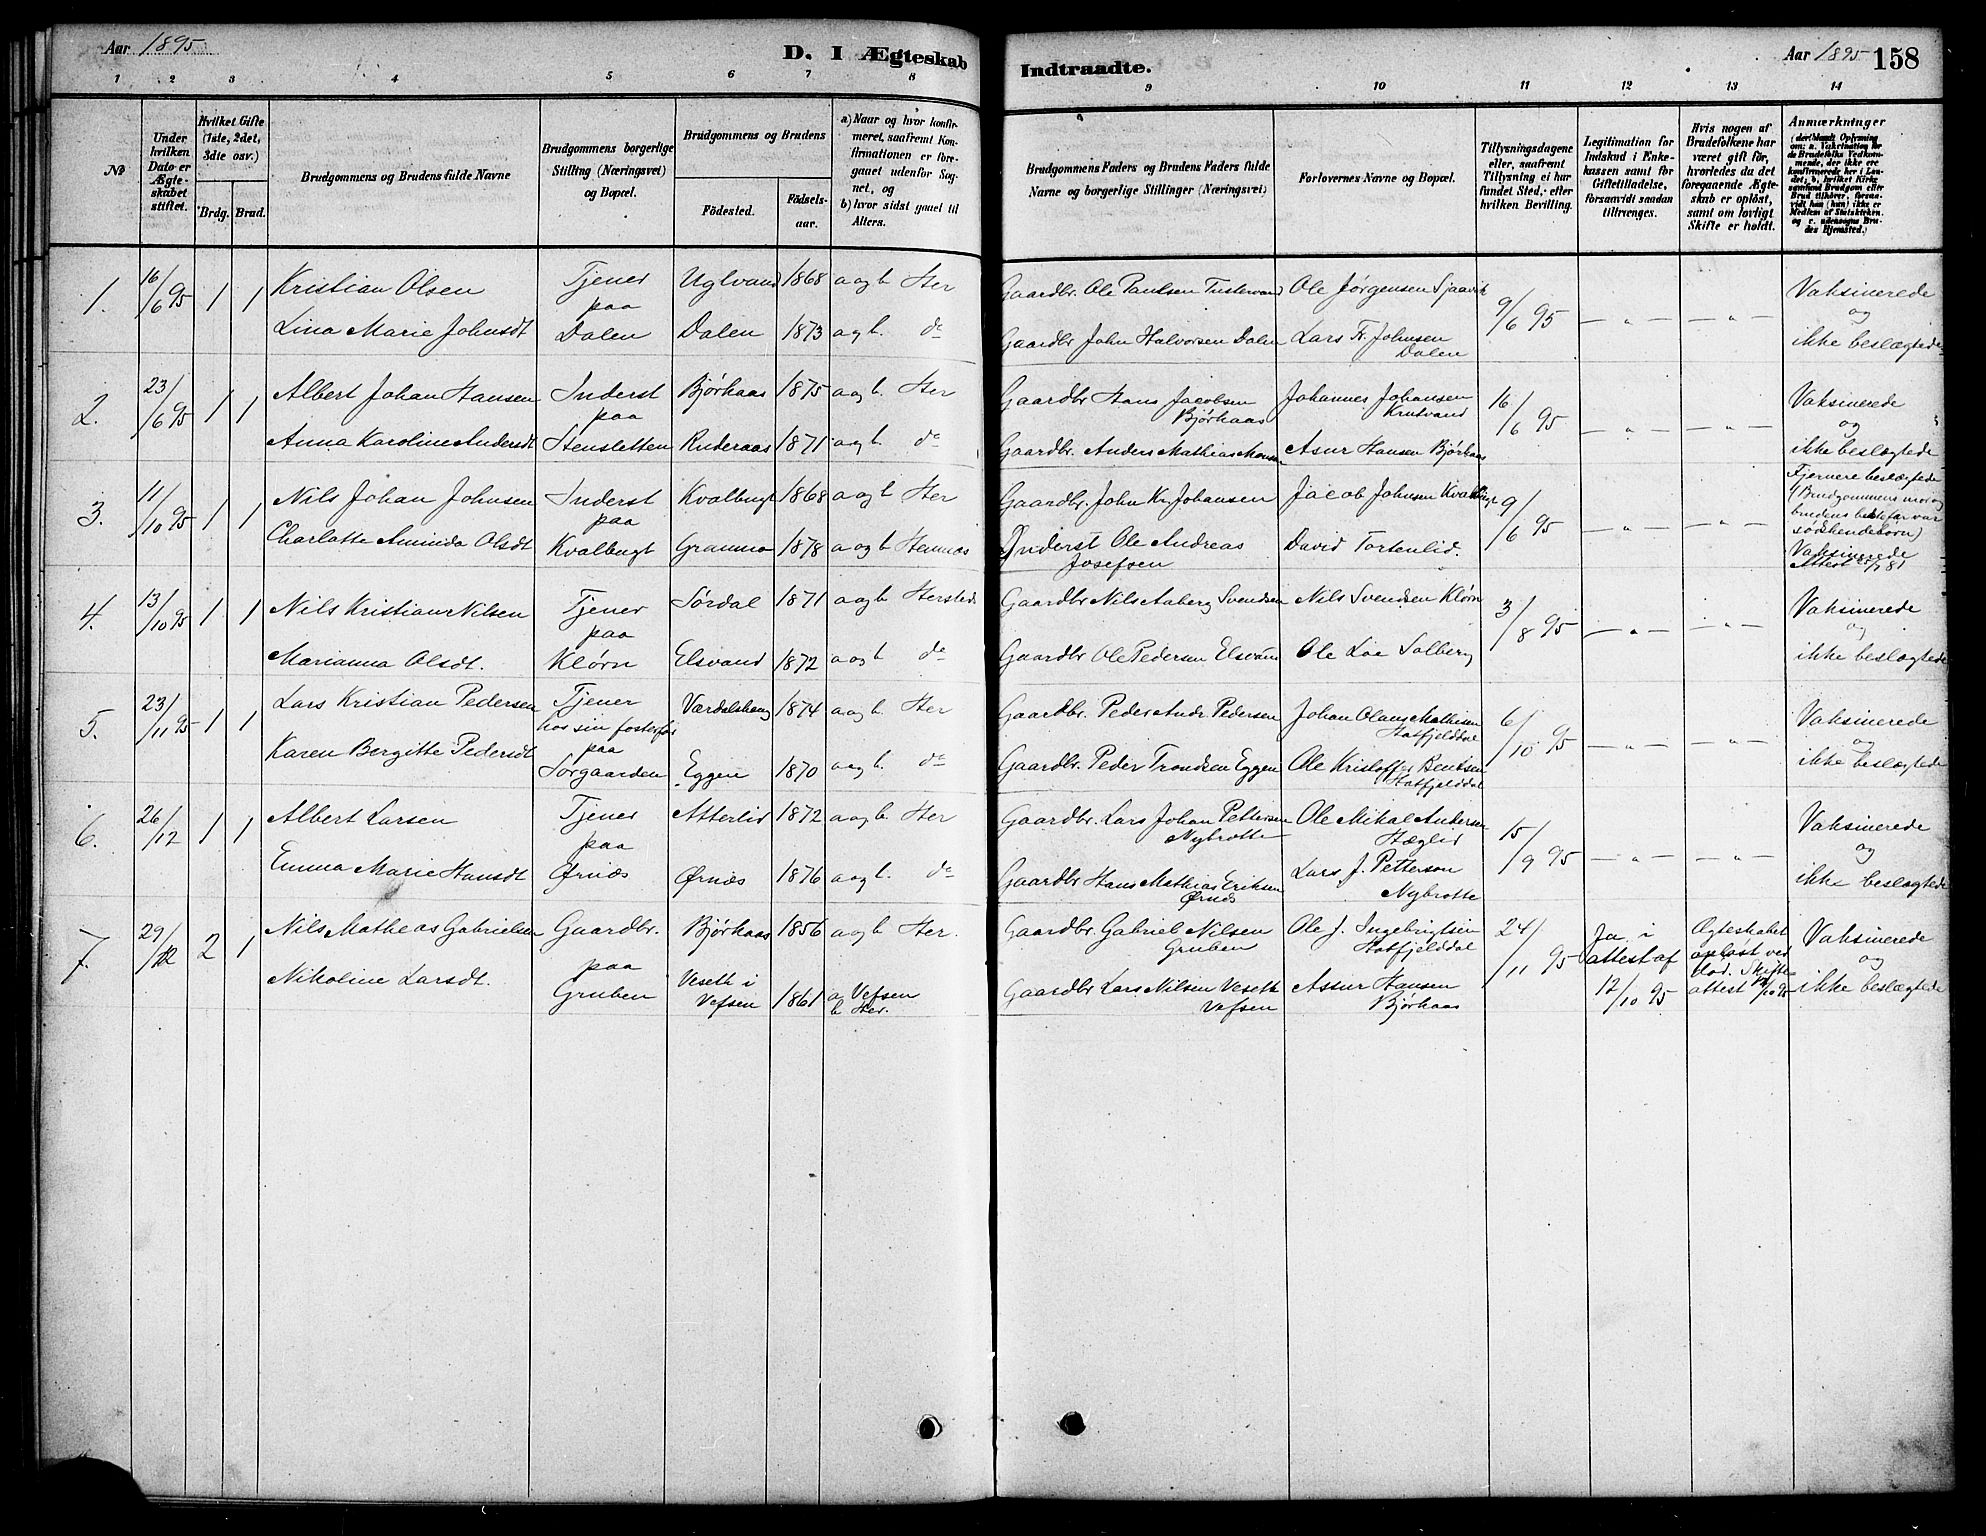 Aar 1895
D. I Ægteskab
Indtraadte.
Aar 1895
158
1 2 3 4 5 6 7 8
9 10 11 12 13 14
No
Under hvilken Dato er Ægteskabet stiftet.
Hvilket Gifte (1ste, 2det, 3die osv.)
Brdg. Brud.
Brudgommens og Brudens fulde Navne
Brudgommens borgerlige Stilling (Næringsvei) og Bopæl.
Brudgommens og Brudens
Födested.
Födselsaar.
a) Naar og hvor konfirmeret, saafremt Konfirmationen er foregaaet udenfor Sognet, og
b) hvor sidst gaaet til Alters.
Brudgommens Faders og Brudens Faders fulde Navne og borgerlige Stillinger (Næringsvei)
Forlovernes Navne og Bopæl.
Tillysningsdagene eller, saafremt Tillysning ei har fundet Sted, efter hvilken Bevilling.
Legitimation for Indskud i Enkekassen samt for Giftetilladelse, forsaavidt saadan tiltrænges.
Hvis nogen af Brudefolkene har været gift för, hvorledes da det foregaaende Ægteskab er oplöst, samt om lovligt Skifte er holdt.
Anmærkninger
1.
16/6 95
1 1
Kristian Olsen
Lina Marie Johnsdt
Tjener
paa
Dalen
Uglvand 1868 a og b. Her
Dalen 1873 a og b. do
Gaardbr. Ole Paulsen Tustervand
Gaardbr John Halvorsen Dalen
Ole Jørgensen Sjaavik
Lars Fr. Johnsen
Dalen
9/6 95
— " —
— " —
Vaksinerede
og
ikke beslægtede
2.
23/6 95
1 1
Albert Johan Hansen
Anna Karoline Andersdt
Inderst
paa
Stensletten
Bjørkaas 1875 a og b. Her
Ruderaas 1871 a og b. do
Gaardbr Hans Jacobsen
Bjørkaas
Gaardbr. Anders Mathias Monsen
Johannes Johansen
Krutvand
Asur Hansen Bjørkaas
16/6 95
— " —
— " —
Vaksinerede
og
ikke beslægtede
3.
11/10 95
1 1
Nils Johan Johnsen
Charlotte Aminda Olsdt
Inderst
paa
Kvalbugt
Kvalbugt 1868 a og b Her
Granmo 1878 a og b Hemnæs
Gaardbr. John Kr. Johansen
Inderst Ole Andreas
Josefsen
Jacob Johnsen Kvalbugt
David Tortenlid.
9/6 95
— " —
— " —
Fjernere beslægtede
(Brudgommens mor og
brudens bestefar var
sødskendebørn)
Vaksinerede
4.
13/10 95
1 1
Nils Kristian Nilsen
Marianna Olsdt.
Tjener
paa
Klørn
Sørdal 1871 a og b Hersteds
Elsvand 1872 a og b do
Gaardbr Nils Aaberg Svendsen
Gaardbr Ole Pedersen Elsvand
Nils Svendsen Klørn
Ole Loe Solberg
3/8 95
— " —
— " —
Vaksinerede
og
ikke beslægtede
5.
23/11 95
1 1
Lars Kristian Pedersen
Karen Bergitte Pedersdt
Tjener
hos sin fosterfar
paa
Sørgaarden
Værdalshaug 1874 a og b. Her
Eggen 1870 a og b. do
Gaardbr. Peder Andr. Pedersen
Gaardbr. Peder Trondsen Eggen
Johan Olaus Mathisen
Hatfjelddal
Ole Kristoffer Bentsen
Hatfjelddal
6/10 95
— " —
— " —
Vaksinerede
og
ikke beslægtede
6.
26/12
1 1
Albert Larsen
Emma Marie Hansdt
Tjener
paa
Ørnæs
Atterlid 1872 a og b. Her
Ørnæs 1876 a og b. do
Gaardbr. Lars Johan Pettersen
Nybrotte
Gaardbr Hans Mathias Eriksen
Ørnæs
Ole Mikal Andersen
Hæglid
Lars J. Petterson
Nybrotte
15/9 95
— " —
— " —
Vaksinerede
og
ikke beslægtede
7.
29/12
2 1
Nils Matheas Gabrielsen
Nikoline Larsdt.
Gaardbr.
paa
Gruben
Bjørkaas 1856 a og b Her.
Veseth i
Vefsen 1861 a Vefsen
b Her.
Gaardbr. Gabriel Nilsen
Gruben
Gaardbr Lars Nilsen Veseth
Vefsen
Ole J. Ingebrigtsen
Hatfjelddal
Assur Hansen
Bjørkaas
24/11 95
Ja i
attest af
12/10 95
Ægteskabet
opløst ved
død. Skifte
attest 12/10 95
Vaksinerede
og
ikke beslægtede